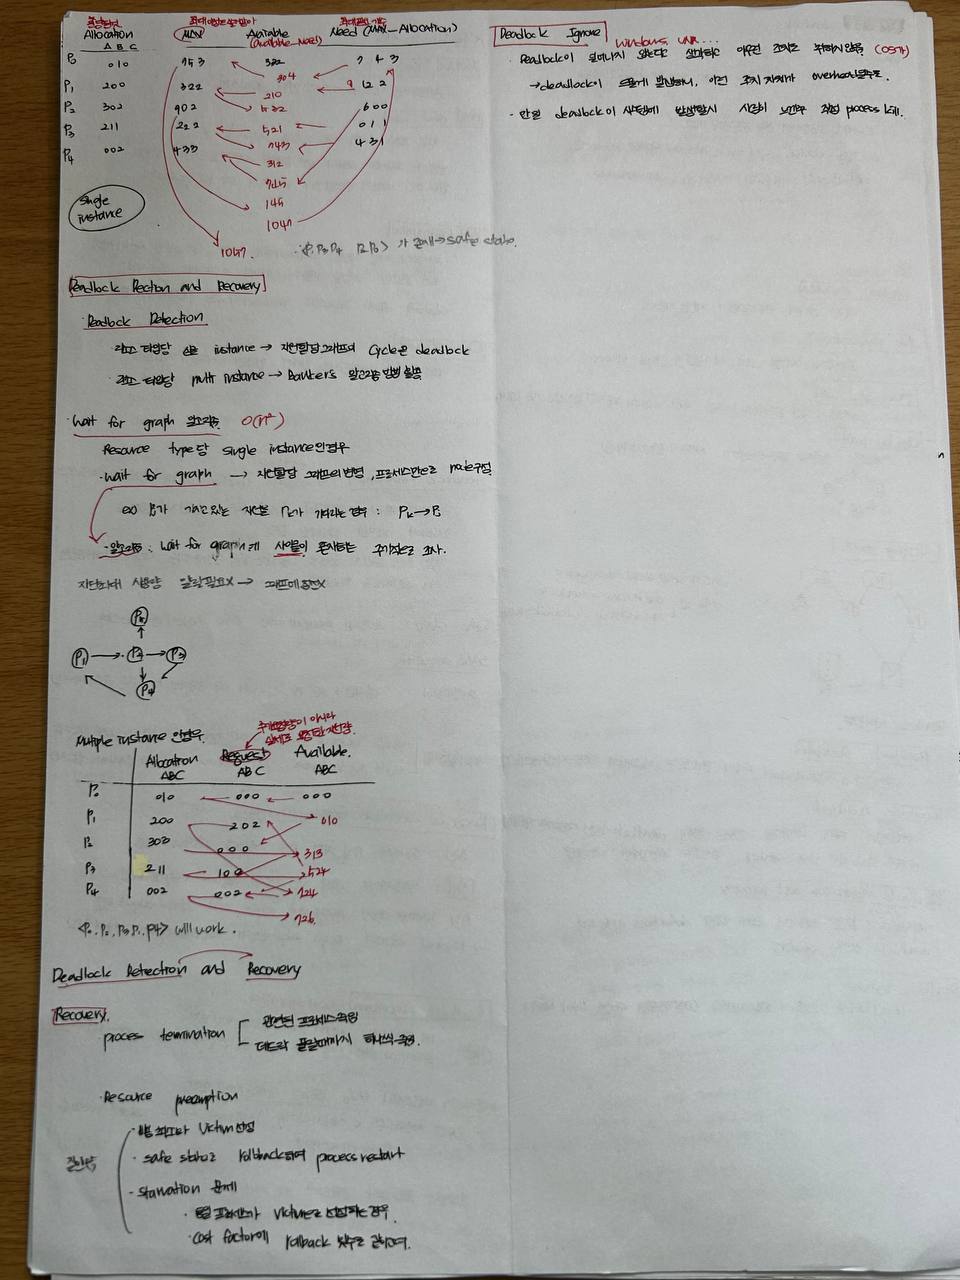 Allocation
A B C
MAX
Available
(Available-Need)
Need (MAX-Allocation)
P0 010 753 332 743
P1 200 322 122
P2 302 902 600
P3 211 222 011
P4 002 433 431
304
210
532
521
743
312
745
145
1047
1047
Single
instance
safe state.
Deadlock Dection and Recovery
· Deadlock Detection
리소스 타입당 instance → 자원할당그래프의 Cycle은 deadlock
리소스 타입당 multi instance → Banker's 알고리즘
· Wait for graph 알고리즘 O(n²)
Resource type 당 single instance인경우
· wait for graph → 자원할당 그래프의 변형, 프로세스만으로 node구성
ex) Pj가 가지고있는 자원을 Pk가 기다리는경우 : Pk → Pj
· 알고리즘 : wait for graph에 사이클이 존재하는 주기적으로 조사.
사용량 알필요X →
P5
P1 P2 P3
P4
Multiple instance 인경우.
실제로 요청한 자원량.
Allocation Request Available.
ABC ABC ABC
P0 010 000 000
P1 200 202 010
P2 303 000
P3 211 100 313
P4 002 002 524
724
726
<P0, P2, P3, P1, P4> will work.
Deadlock Detection and Recovery
Recovery.
process termination
관련된 프로세스
데드락 풀릴때까지 하나씩
· Resource preemption
· 비용 최소화 victim 선정
· safe state로 rollback하여 process restart
· Starvation 문제
· 프로세스가 victim으로 선정되는경우.
· Cost factor에 rollback 횟수도 같이고려.
Deadlock Ignore
windows, unix...
· Deadlock이 일어나지 않는다 생각하고 아무런 조치도 취하지 않음. (OS가)
→ deadlock이 드물게 발생해서, 이런 조치 자체가 overhead
· 만일 deadlock이 시스템에 발생할시 사람이 느낀후 직접 process kill.